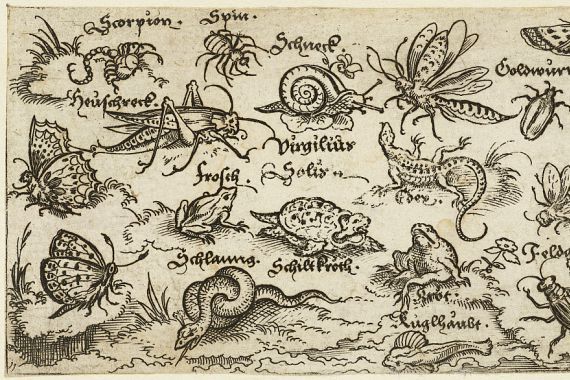 Scorpion.
Spin.
Schneck.
Goldwur
Heuschreck.
Virgilius
Solis
frosch.
Edex.
Schlanng.
Schiltkroth.
Krot.
Feldg
Kuglhaubt.